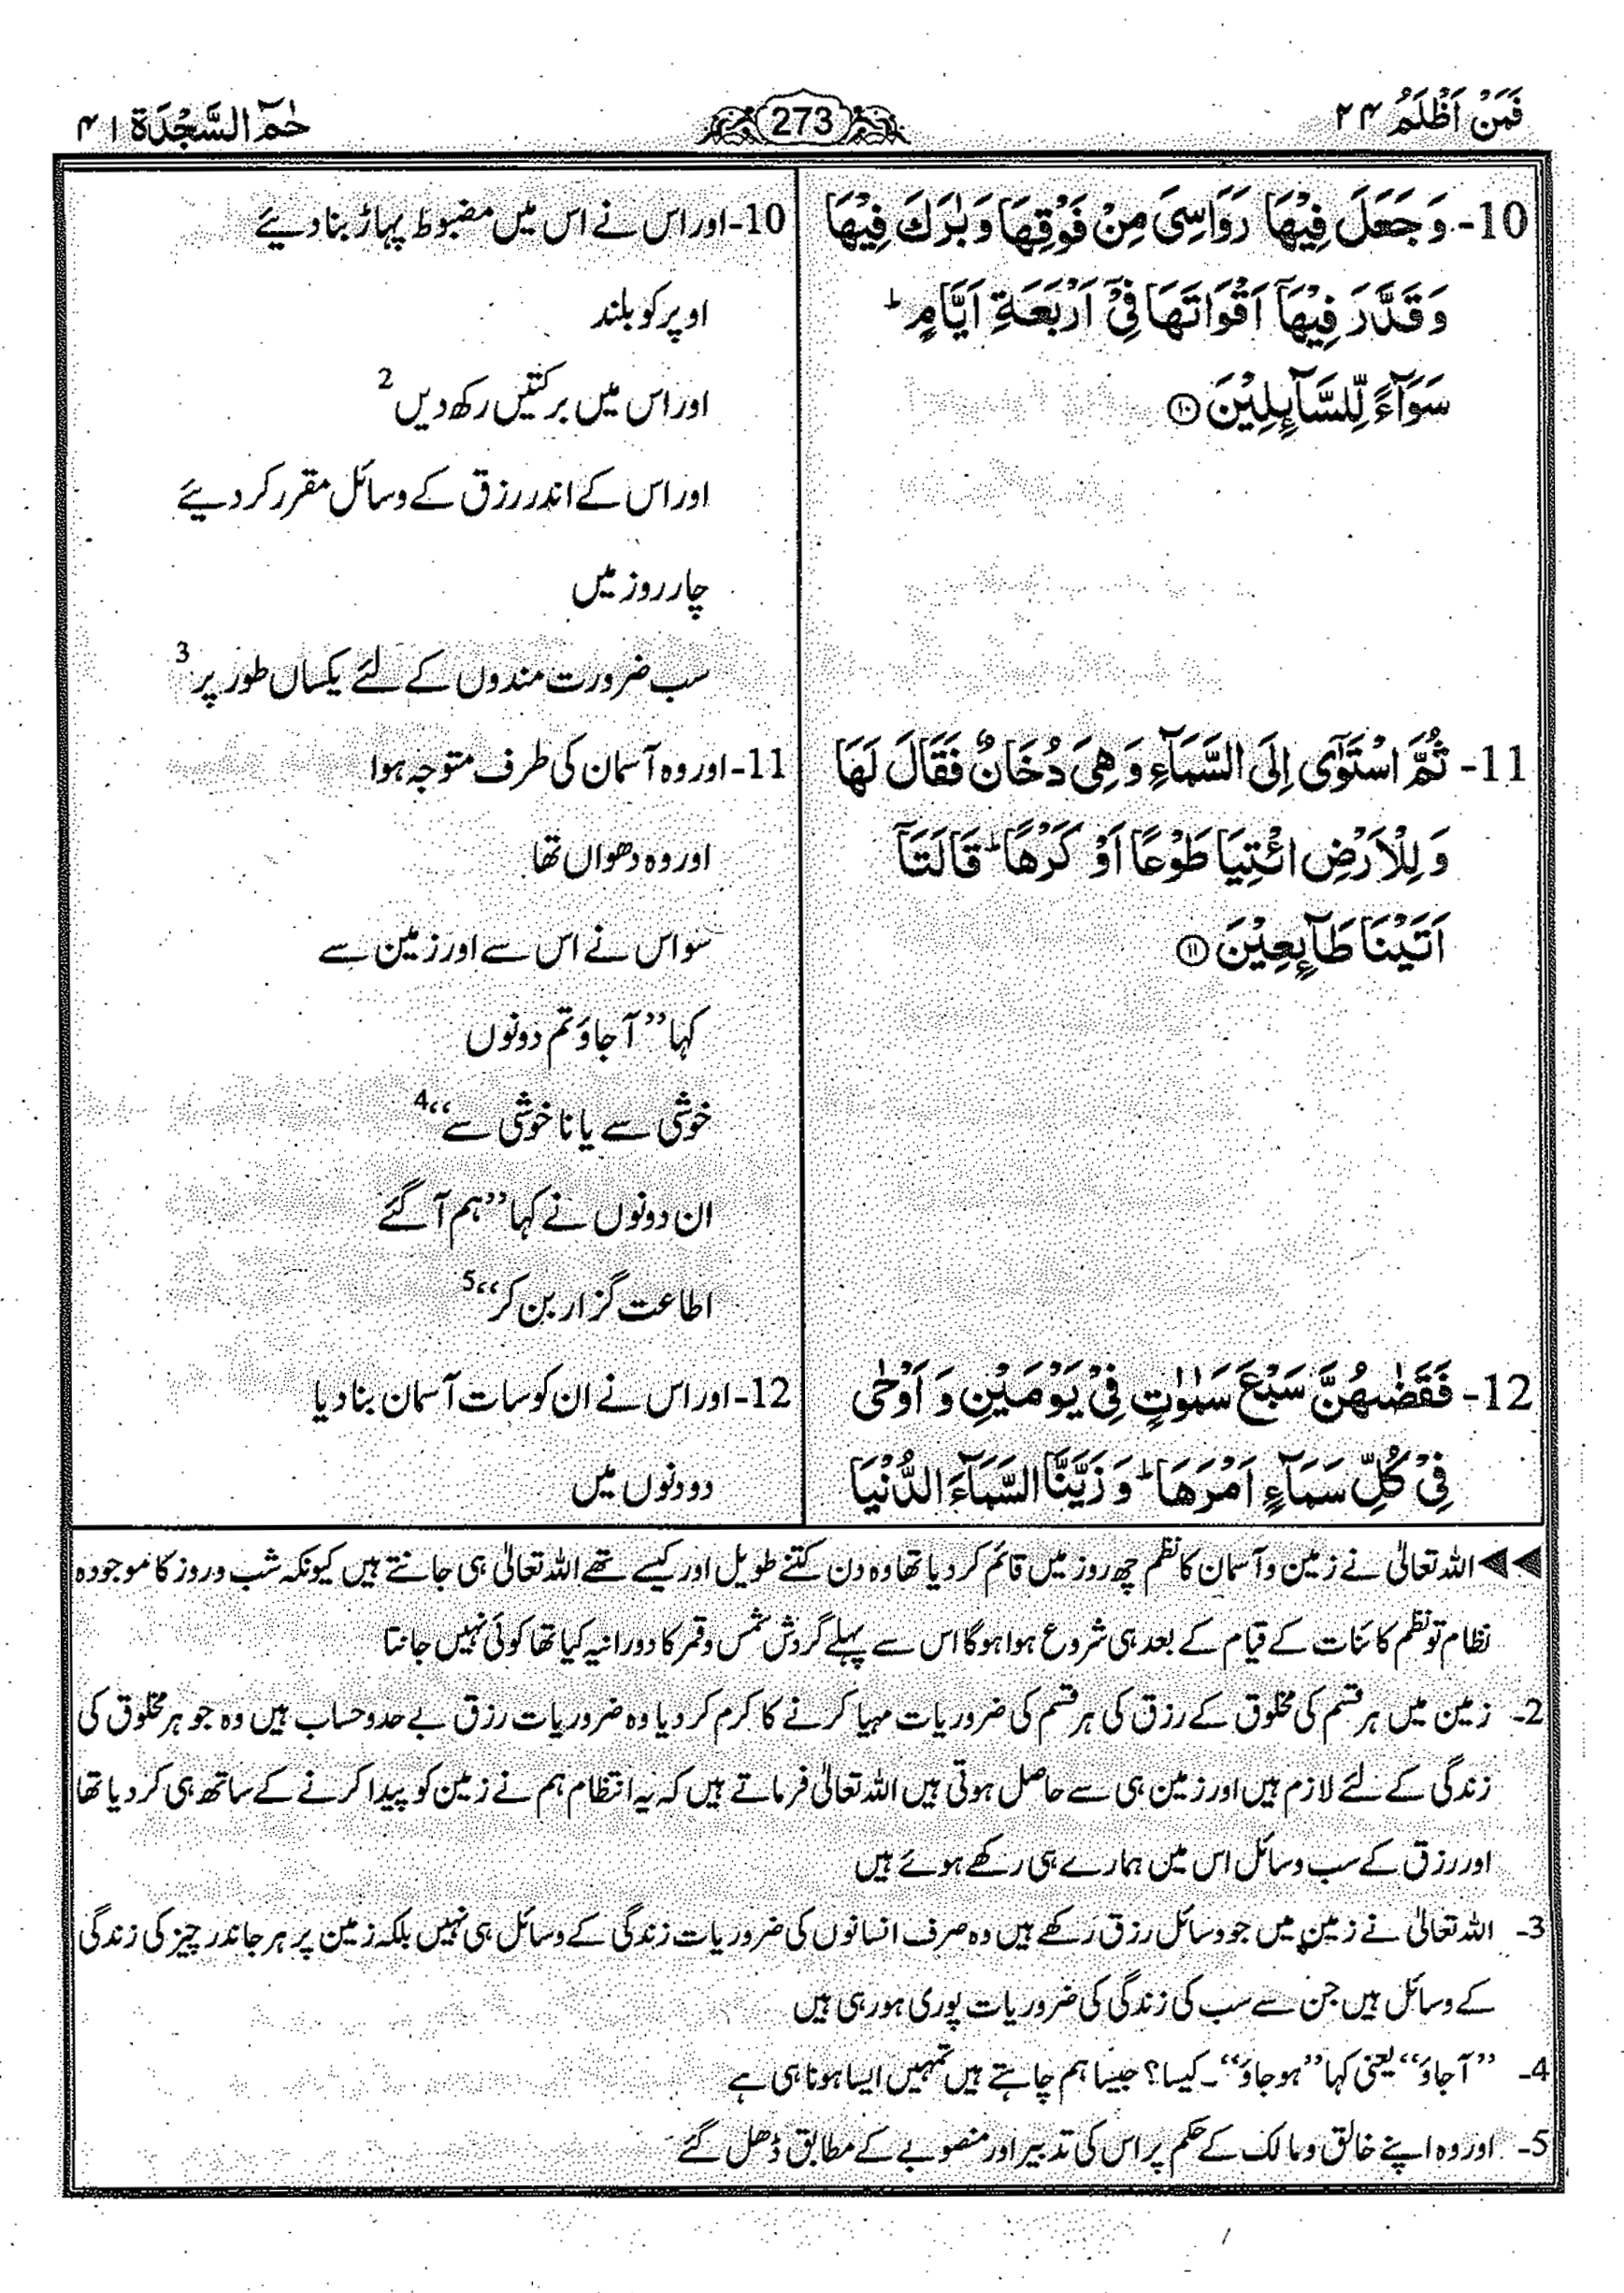 فَمَنْ اَظْلَمُ ۲۴
273
حٰمٓ السَّجْدَة ۴۱
10- وَجَعَلَ فِيْهَا رَوَاسِىَ مِنْ فَوْقِهَا وَبٰرَكَ فِيْهَا
وَقَدَّرَ فِيْهَآ اَقْوَاتَهَا فِىْٓ اَرْبَعَةِ اَيَّامٍ ؕ
سَوَآءً لِّلسَّآىِٕلِيْنَ ۝۱۰
11- ثُمَّ اسْتَوٰٓى اِلَى السَّمَآءِ وَهِىَ دُخَانٌ فَقَالَ لَهَا
وَلِلْاَرْضِ ائْتِيَا طَوْعًا اَوْ كَرْهًا ؕ قَالَتَآ
اَتَيْنَا طَآىِٕعِيْنَ ۝۱۱
12- فَقَضٰىهُنَّ سَبْعَ سَمٰوٰتٍ فِىْ يَوْمَيْنِ وَ اَوْحٰى
فِىْ كُلِّ سَمَآءٍ اَمْرَهَا ؕ وَزَيَّنَّا السَّمَآءَ الدُّنْيَا
10- اور اس نے اس میں مضبوط پہاڑ بنا دیئے
اوپر کو بلند
اور اس میں برکتیں رکھ دیں 2
اور اس کے اندر رزق کے وسائل مقرر کر دیئے
چار روز میں
سب ضرورت مندوں کے لئے یکساں طور پر 3
11- اور وہ آسمان کی طرف متوجہ ہوا
اور وہ دھواں تھا
سو اس نے اس سے اور زمین سے
کہا ’’آ جاؤ تم دونوں
خوشی سے یا نا خوشی سے‘‘ 4
ان دونوں نے کہا ’’ہم آ گئے
اطاعت گزار بن کر‘‘ 5
12- اور اس نے ان کو سات آسمان بنا دیا
دو دنوں میں
◄◄ اللہ تعالیٰ نے زمین و آسمان کا نظم چھ روز میں قائم کر دیا تھا وہ دن کتنے طویل اور کیسے تھے اللہ تعالیٰ ہی جانتے ہیں کیونکہ شب و روز کا موجودہ
نظام تو نظم کائنات کے قیام کے بعد ہی شروع ہوا ہوگا اس سے پہلے گردش شمس و قمر کا دورانیہ کیا تھا کوئی نہیں جانتا
2- زمین میں ہر قسم کی مخلوق کے رزق کی ہر قسم کی ضروریات مہیا کرنے کا کرم کر دیا وہ ضروریات رزق بے حد و حساب ہیں وہ جو ہر مخلوق کی
زندگی کے لئے لازم ہیں اور زمین ہی سے حاصل ہوتی ہیں اللہ تعالیٰ فرماتے ہیں کہ یہ انتظام ہم نے زمین کو پیدا کرنے کے ساتھ ہی کر دیا تھا
اور رزق کے سب وسائل اس میں ہمارے ہی رکھے ہوئے ہیں
3- اللہ تعالیٰ نے زمین میں جو وسائل رزق رکھے ہیں وہ صرف انسانوں کی ضروریات زندگی کے وسائل ہی نہیں بلکہ زمین پر ہر جاندر چیز کی زندگی
کے وسائل ہیں جن سے سب کی زندگی کی ضروریات پوری ہو رہی ہیں
4- ’’آ جاؤ‘‘ یعنی کہا ’’ہو جاؤ‘‘۔ کیسا؟ جیسا ہم چاہتے ہیں تمہیں ایسا ہونا ہی ہے
5- اور وہ اپنے خالق و مالک کے حکم پر اس کی تدبیر اور منصوبے کے مطابق ڈھل گئے